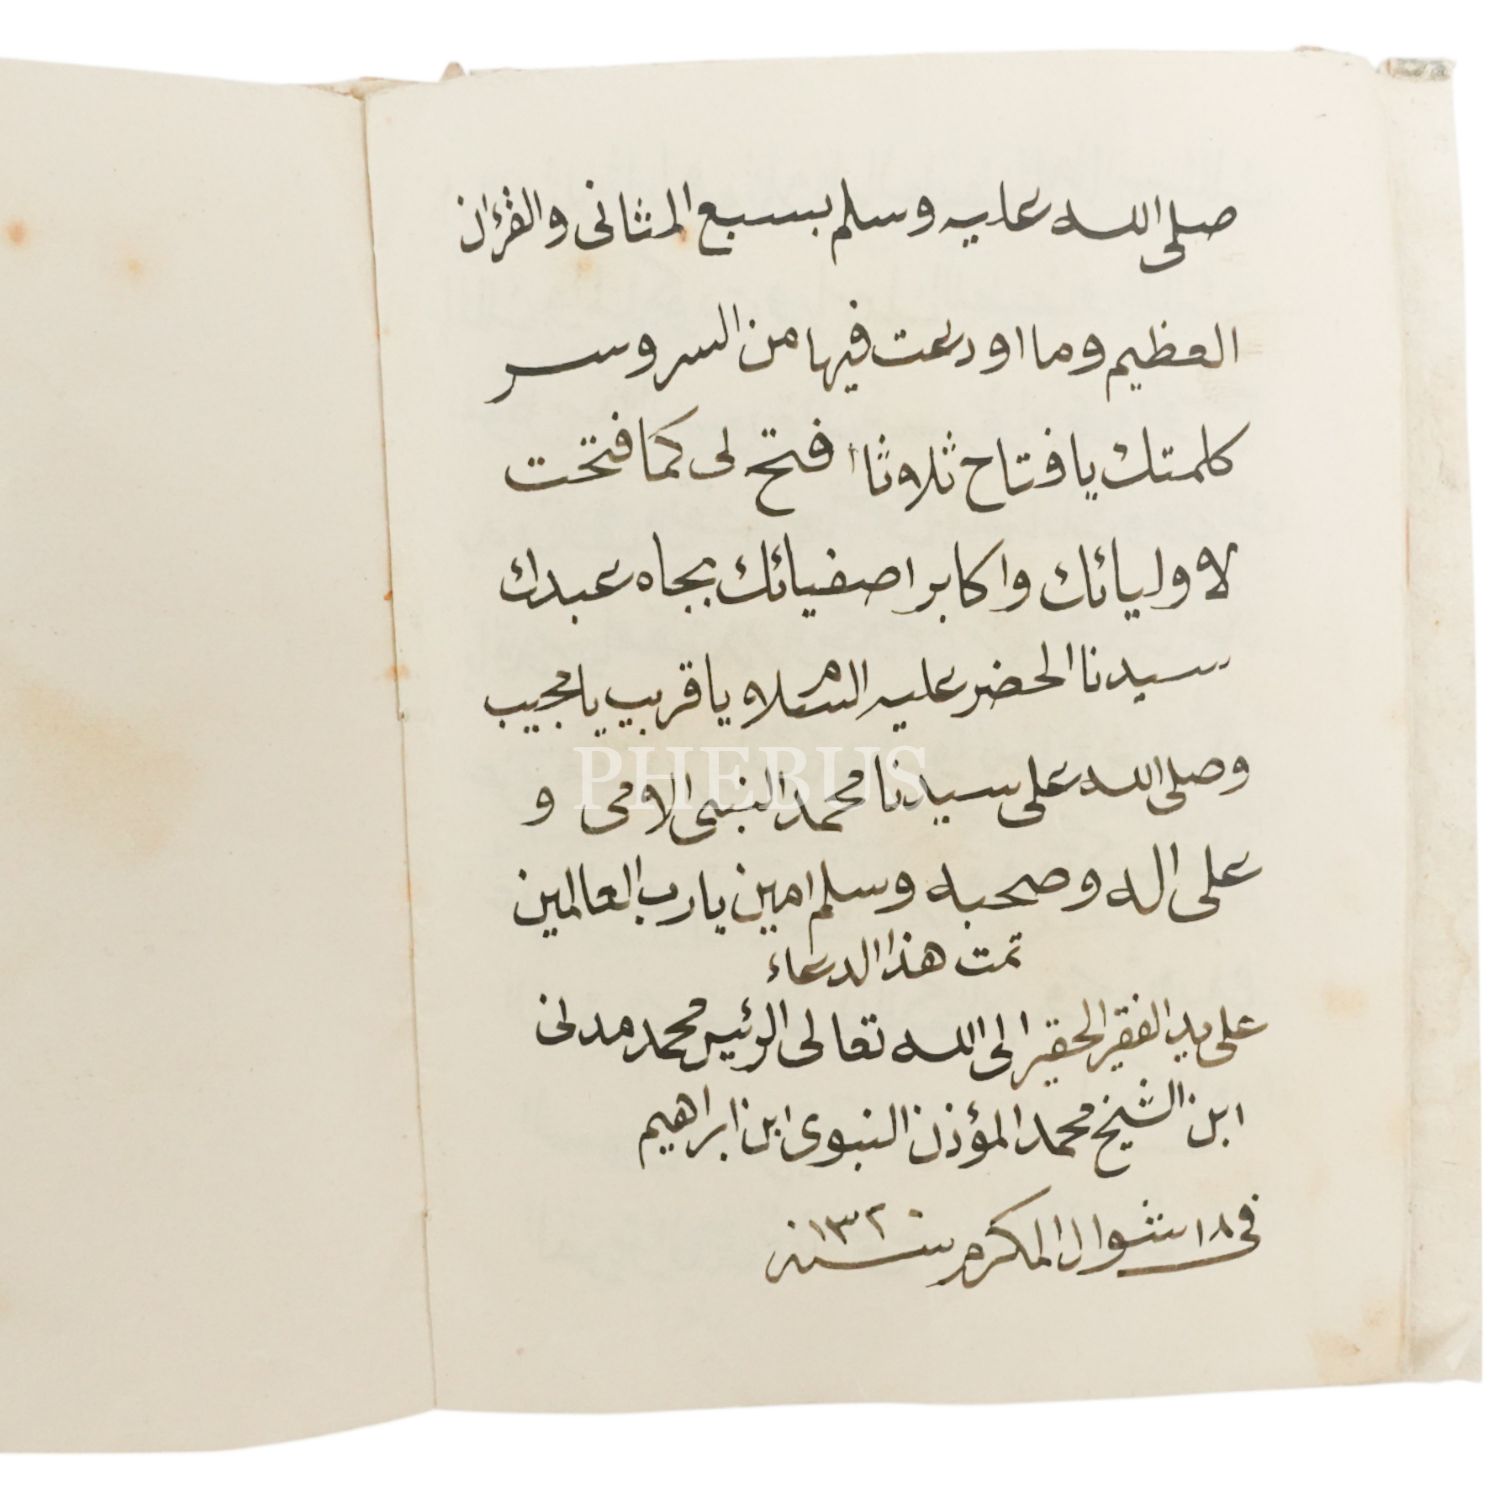 صلى الله عليه وسلم بسبع المثانى والقرءان
العظيم وما اودعت فيها من السر وسر
كلمتك يا فتاح ثلاوثا افتح لى كما فتحت
لاوليائك واكابر اصفيائك بجاه عبدك
سيدنا الخضر عليه السلام يا قريب يا مجيب
وصلى الله على سيدنا محمد النبى الاومى و
على اله وصحبه وسلم امين يا رب العالمين
تمت هذا الدعاء
على يد الفقير الحقير الى الله تعالى الرئيس محمد مدنى
ابن الشيخ محمد المؤذن النبوى ابن ابراهيم
فى ١٨ شوال المكرم سنة ١٣٢٠
PHEBUS